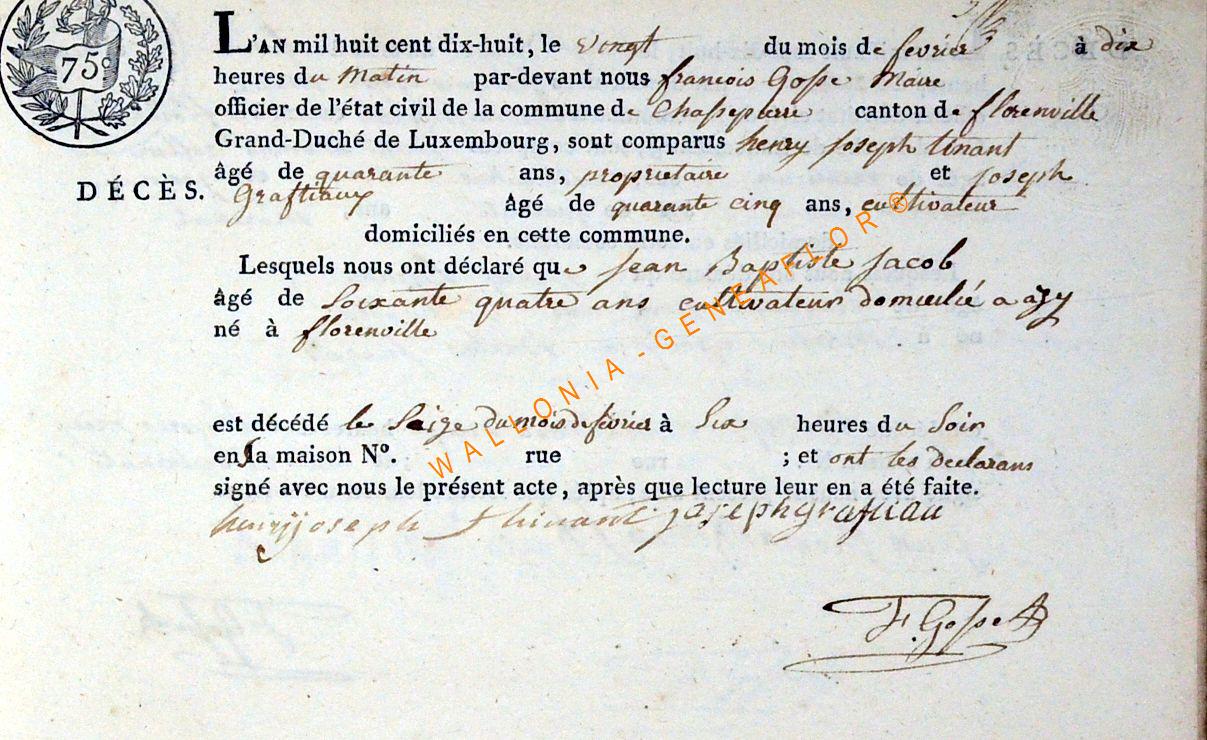 75c
L'AN mil huit cent dix-huit, le vingt du mois de fevrier à dix
heures du Matin par-devant nous francois Gosse Maire
officier de l'état civil de la commune de Chassepierre canton de florenville
Grand-Duché de Luxembourg, sont comparus henry joseph tinant
DÉCÈS.
âgé de quarante ans, propriétaire et joseph
Graftiaux âgé de quarante cinq ans, cultivateur
domiciliés en cette commune.
Lesquels nous ont déclaré que jean Baptiste jacob
âgé de Soixante quatre ans cultivateur domicilié a azy
né à florenville
est décédé le Saize du mois de fevrier à Six heures du Soir
en sa maison Nº. rue ; et ont les declarans
signé avec nous le présent acte, après que lecture leur en a été faite.
henry joseph thinant joseph graftiau
F. Gosse
WALLONIA-GENEAFLOR ®